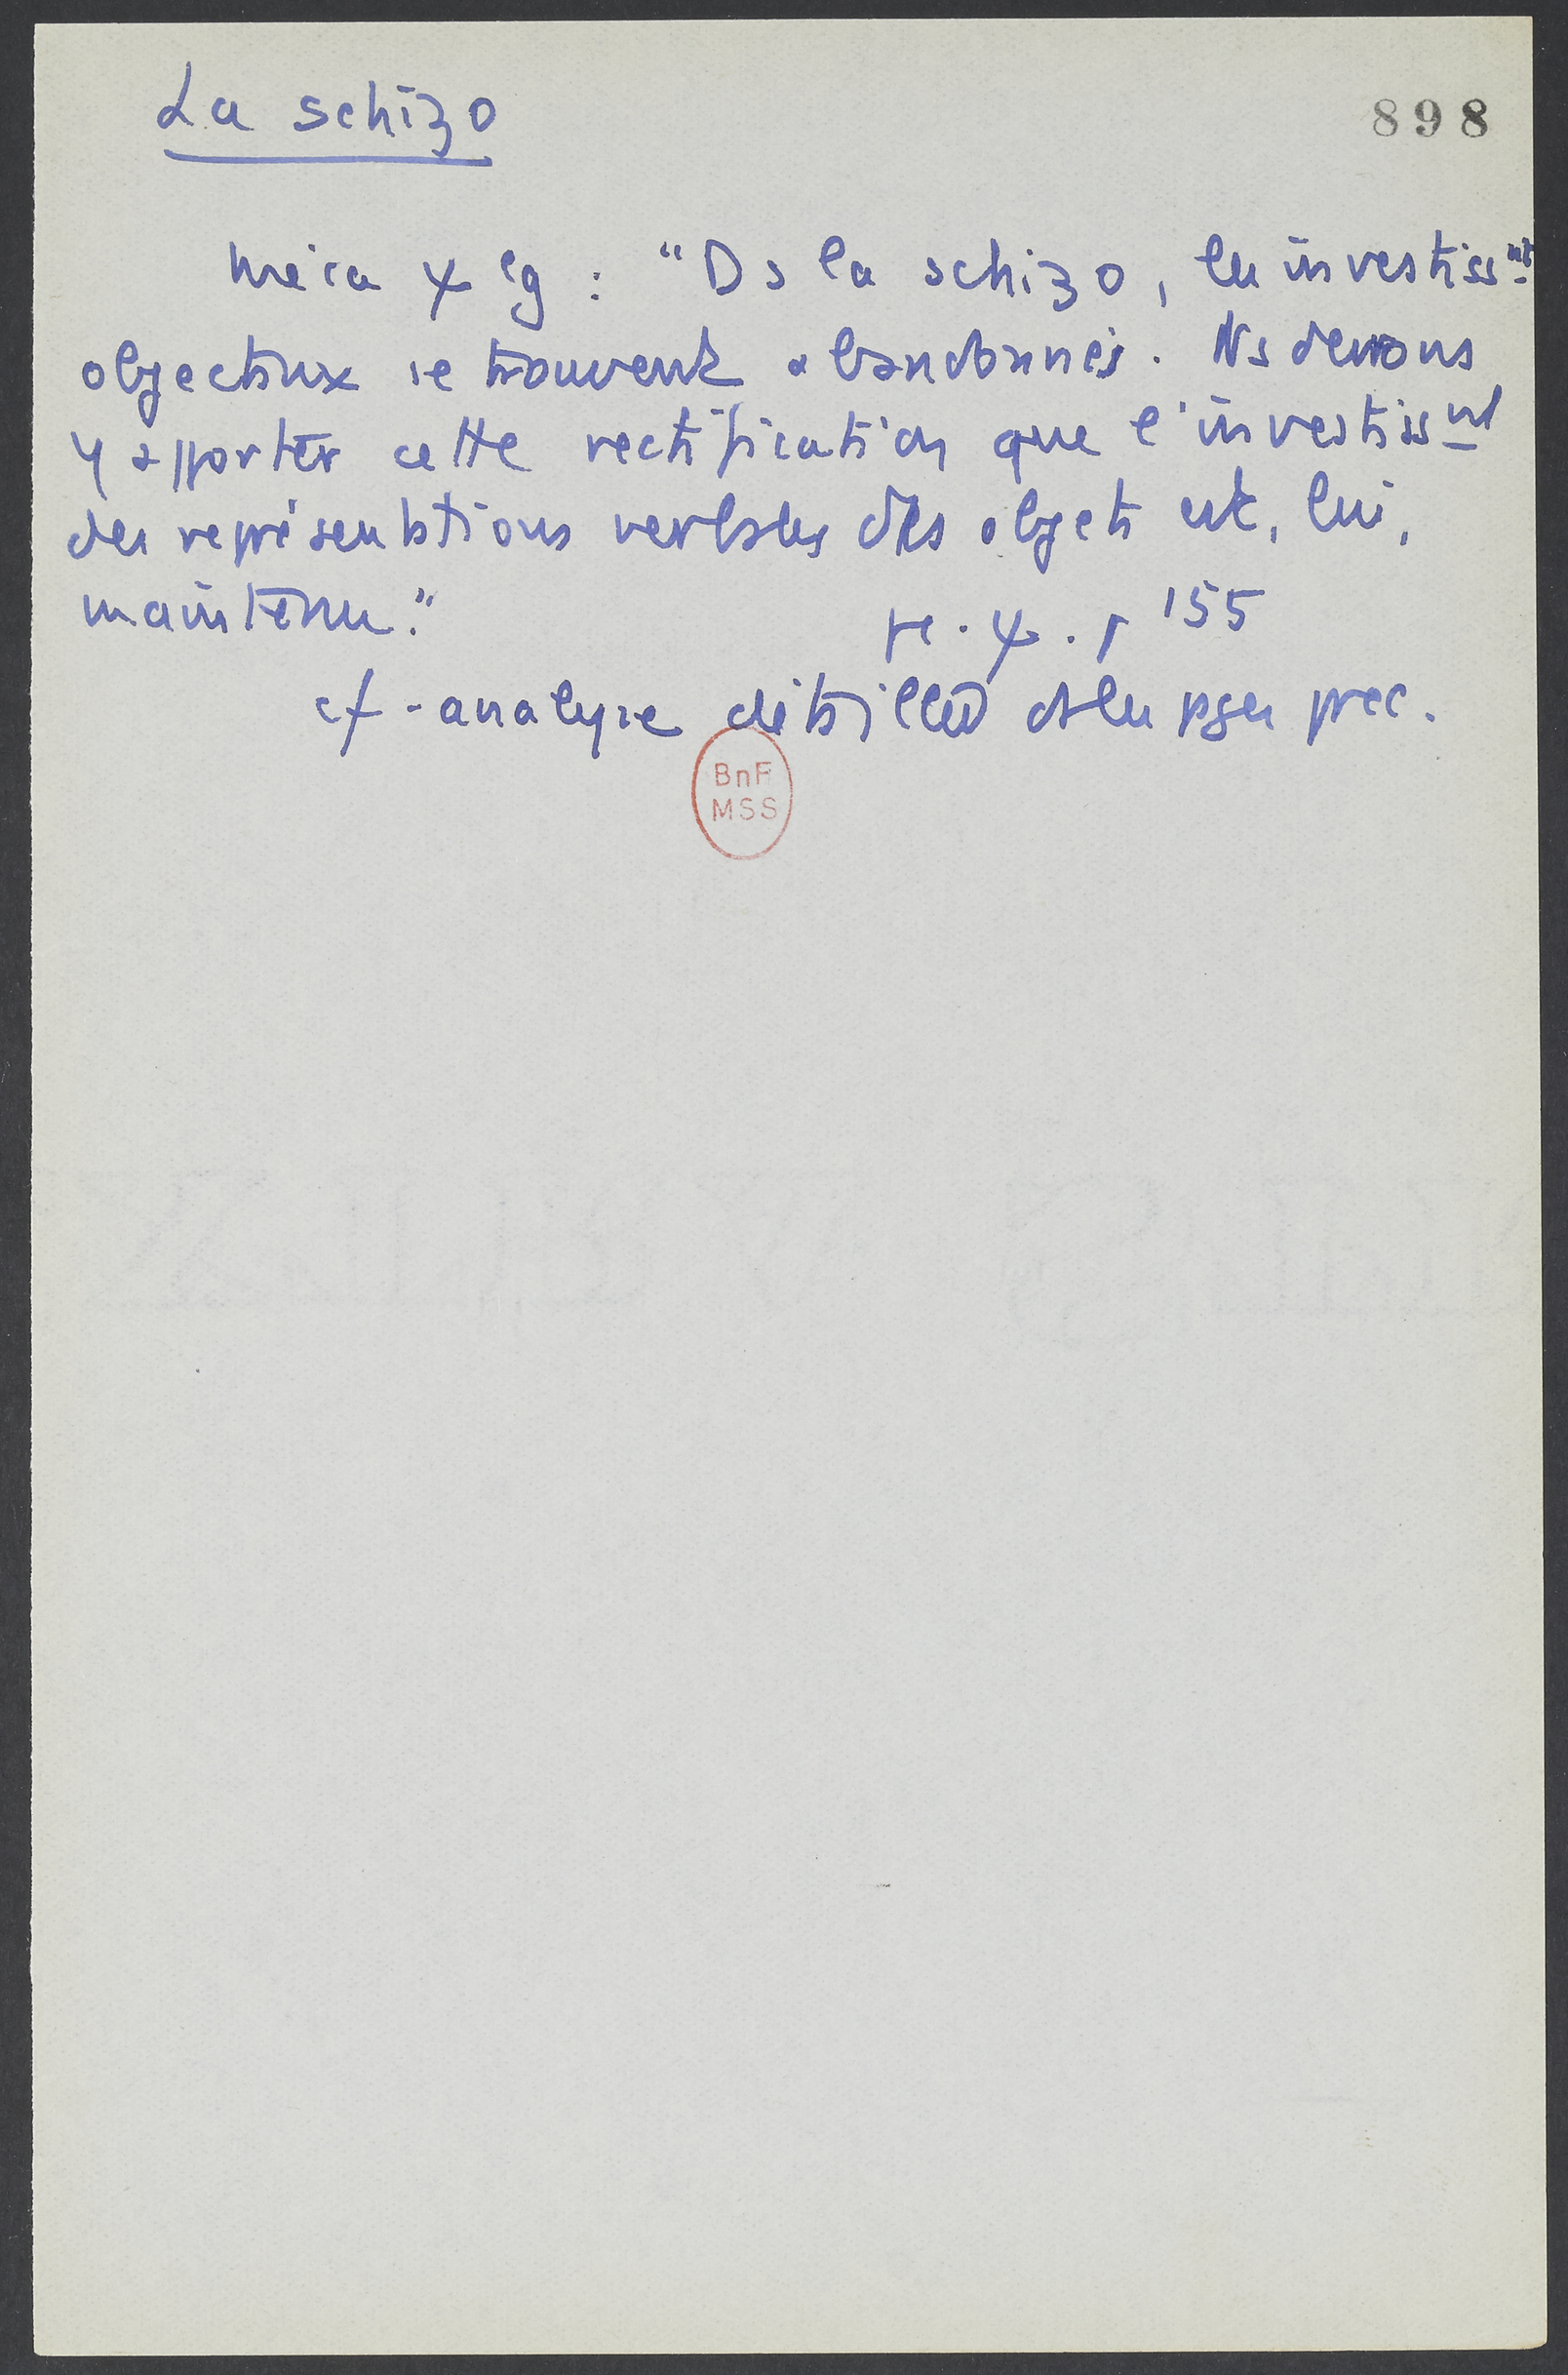 La schizo
898
méca ψ ig : "Ds la schizo, les investissnt
objectaux se trouvent abandonnés. Ns devons
y apporter cette rectification que l'investissnt
des représentations verbales des objets est, lui,
maintenu."
ψ. p 155
cf - analyse détaillée ds les pges prec.
BnF
MSS